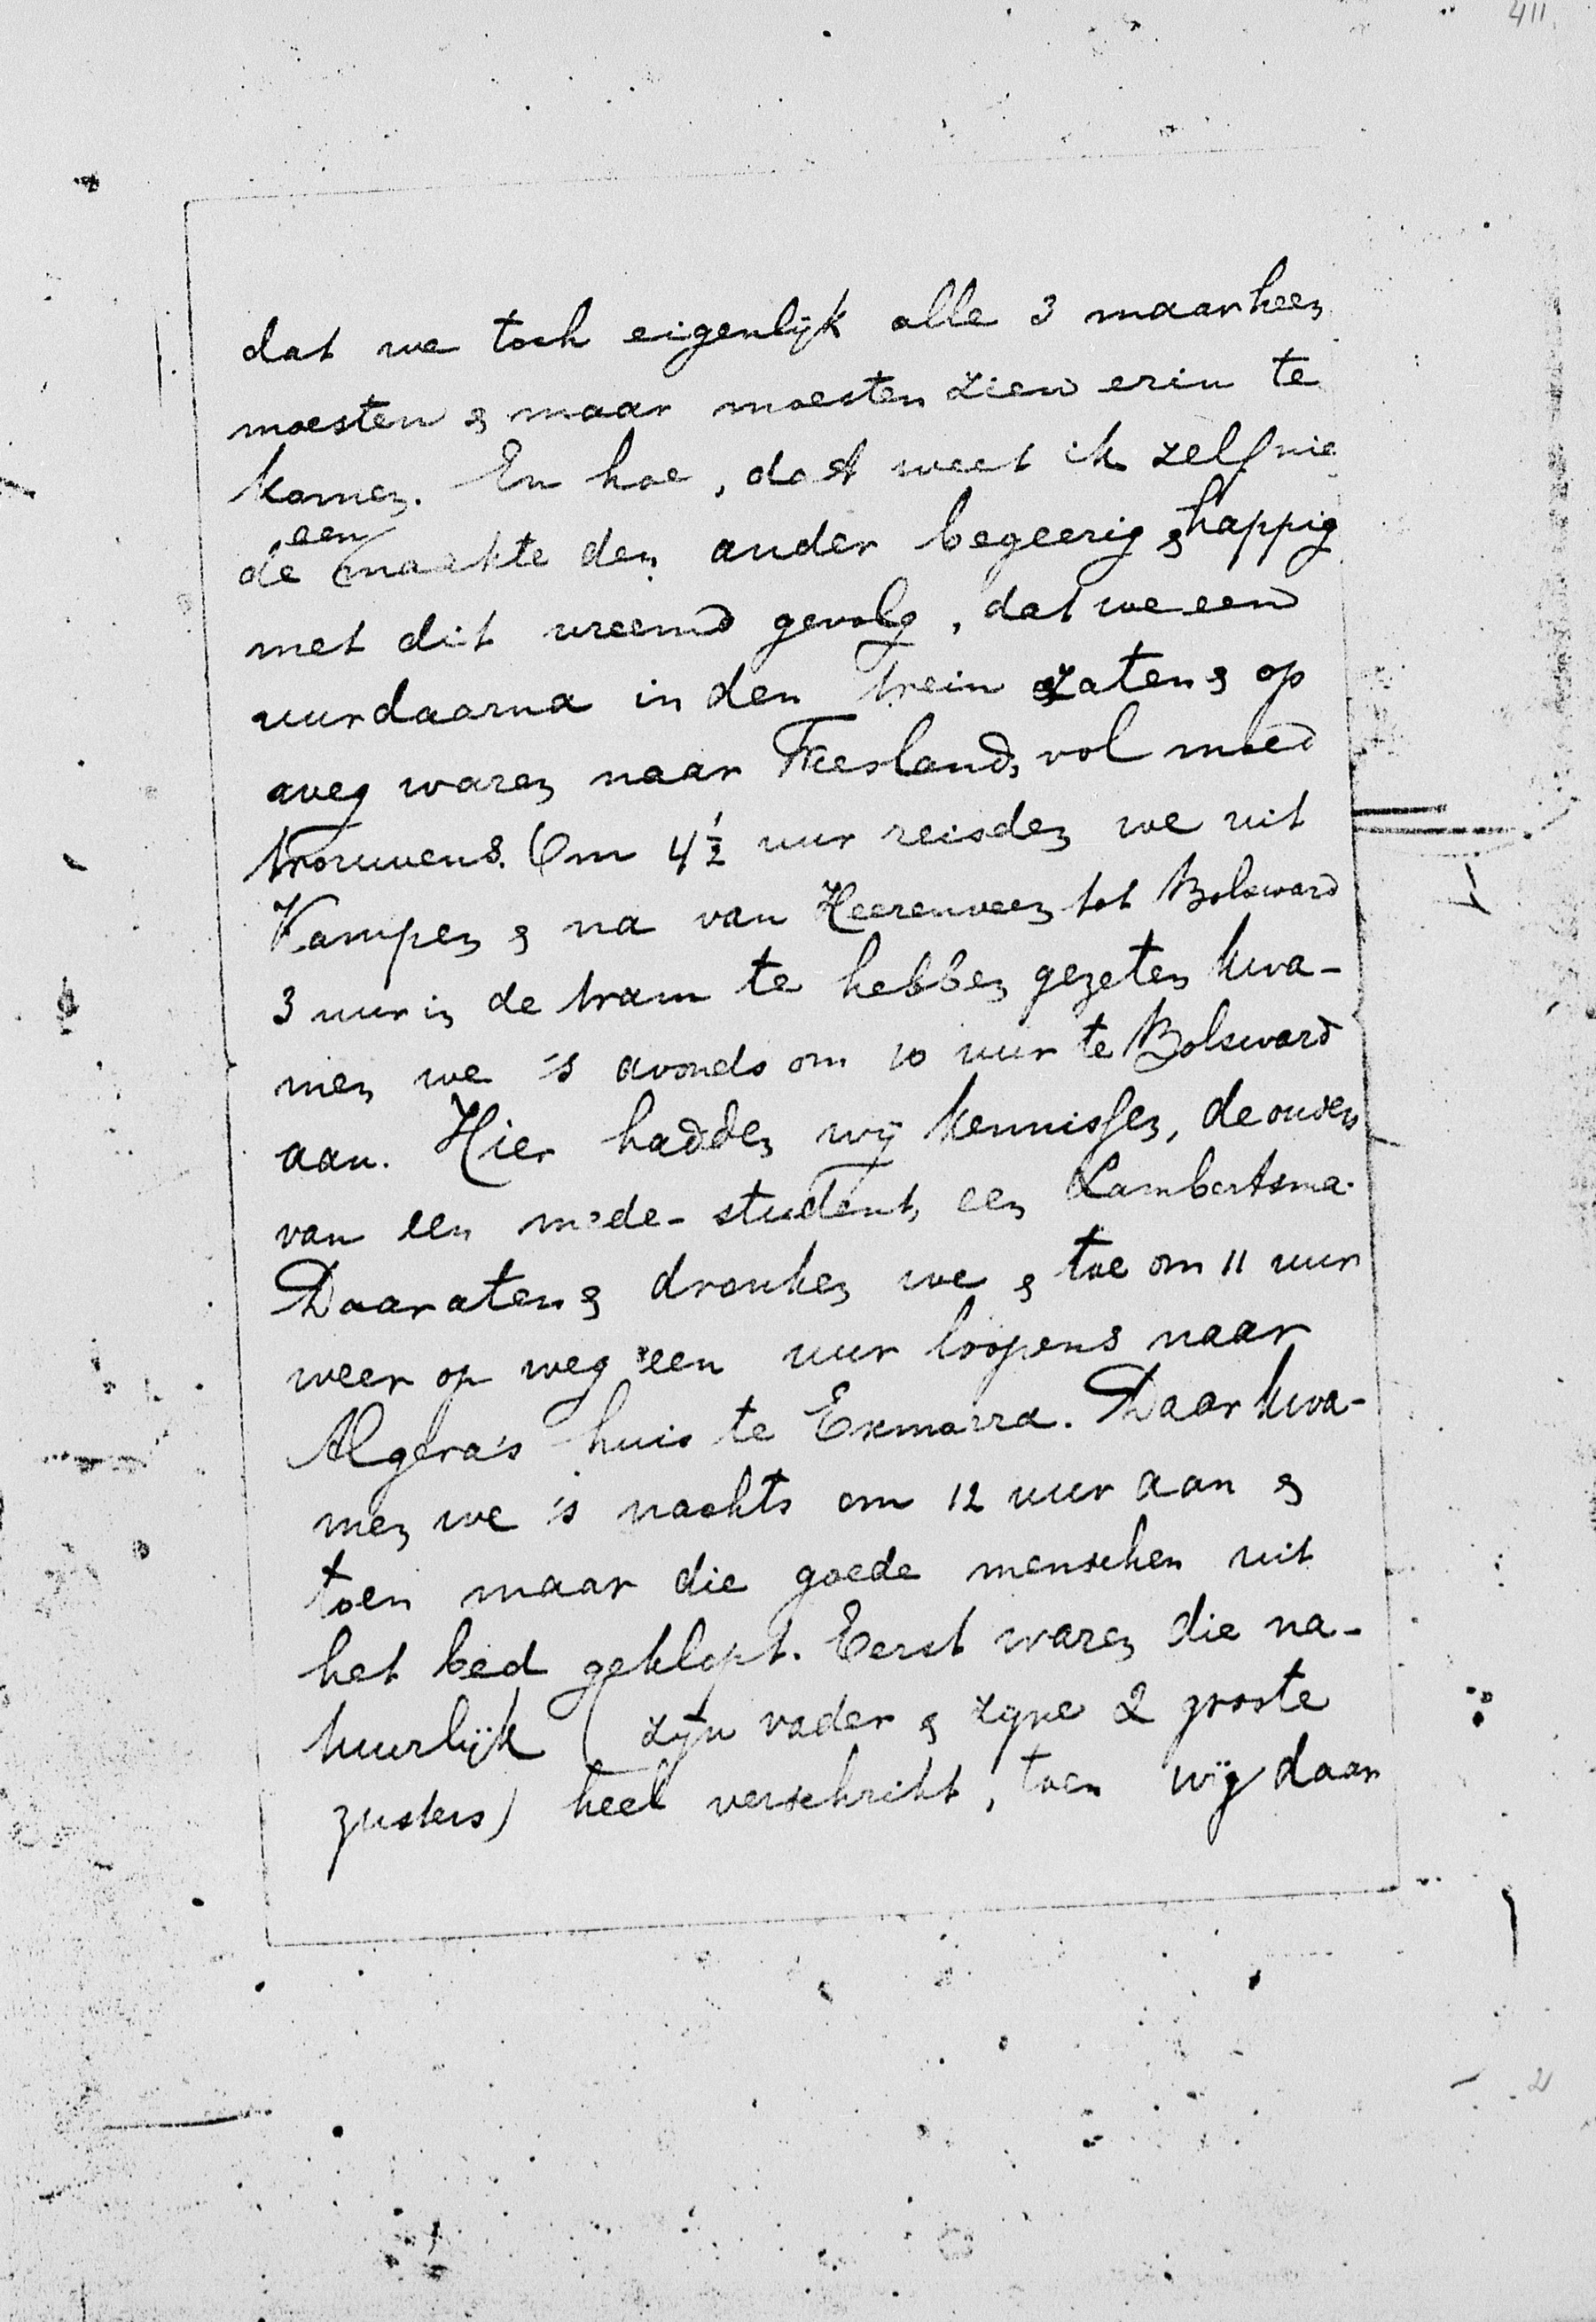 411
dat we toch eigenlijk alle 3 maar heen
moesten & maar moesten zien erin te
komen. En hoe, dat weet ik zelf nie
de een maakte den ander begeerig & happig
met dit vreemd gevolg, dat we een
uur daarna in den trein zaten & op
weg waren naar Friesland, vol moed
trouwens. Om 4½ uur reisden we uit
Kampen & na van Heerenveen tot Bolsward
3 uur in de tram te hebben gezeten kwa-
men we 's avonds om 10 uur te Bolsward
aan. Hier hadden wij kennissen, de ouders
van een mede-student, een Lambertsma.
Daar aten & dronken we & toe om 11 uur
weer op weg een uur loopens naar
Algera's huis te Exmorra. Daar kwa-
men we 's nachts om 12 uur aan &
toen maar die goede menschen uit
het bed geklopt. Eerst waren die na-
tuurlijk (zijn vader & zijne 2 groote
zusters) heel verschrikt, toen wij daar
2